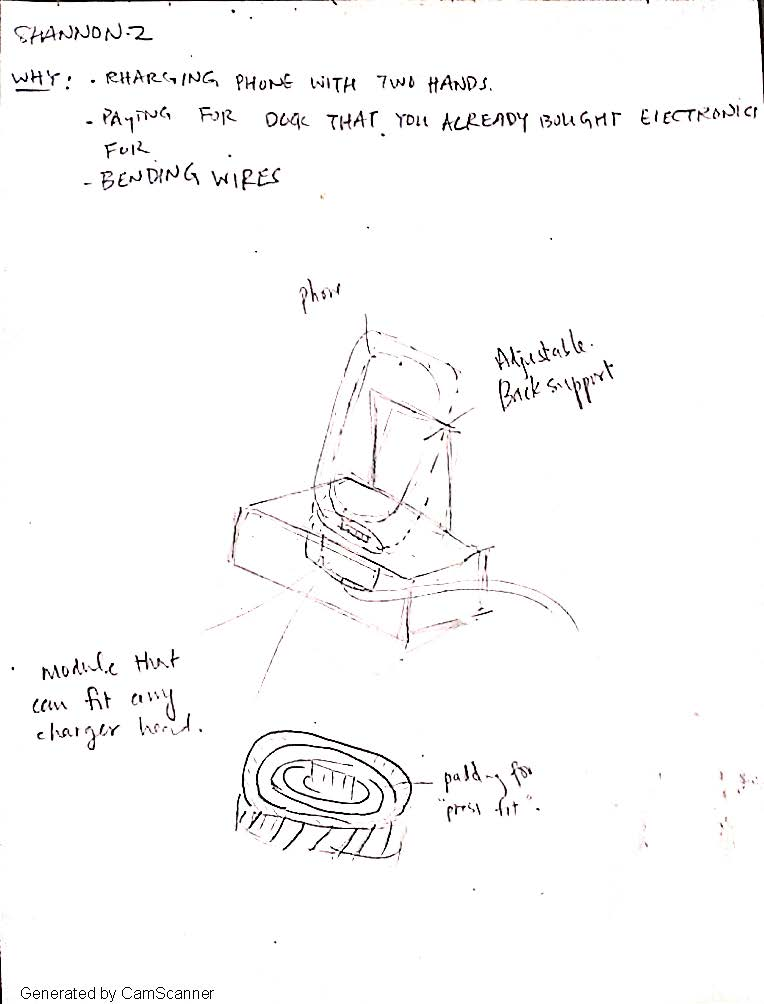 SHANNON-2
WHY: . RHARGING PHONE WITH TWO HANDS.
- PAYING FOR DOCK THAT YOU ALREADY BOUGHT ELECTRONICS
FOR
- BENDING WIRES
phone
Adjustable.
Back support
. Module that
can fit any
charger head.
padding for
"press fit".
Generated by CamScanner